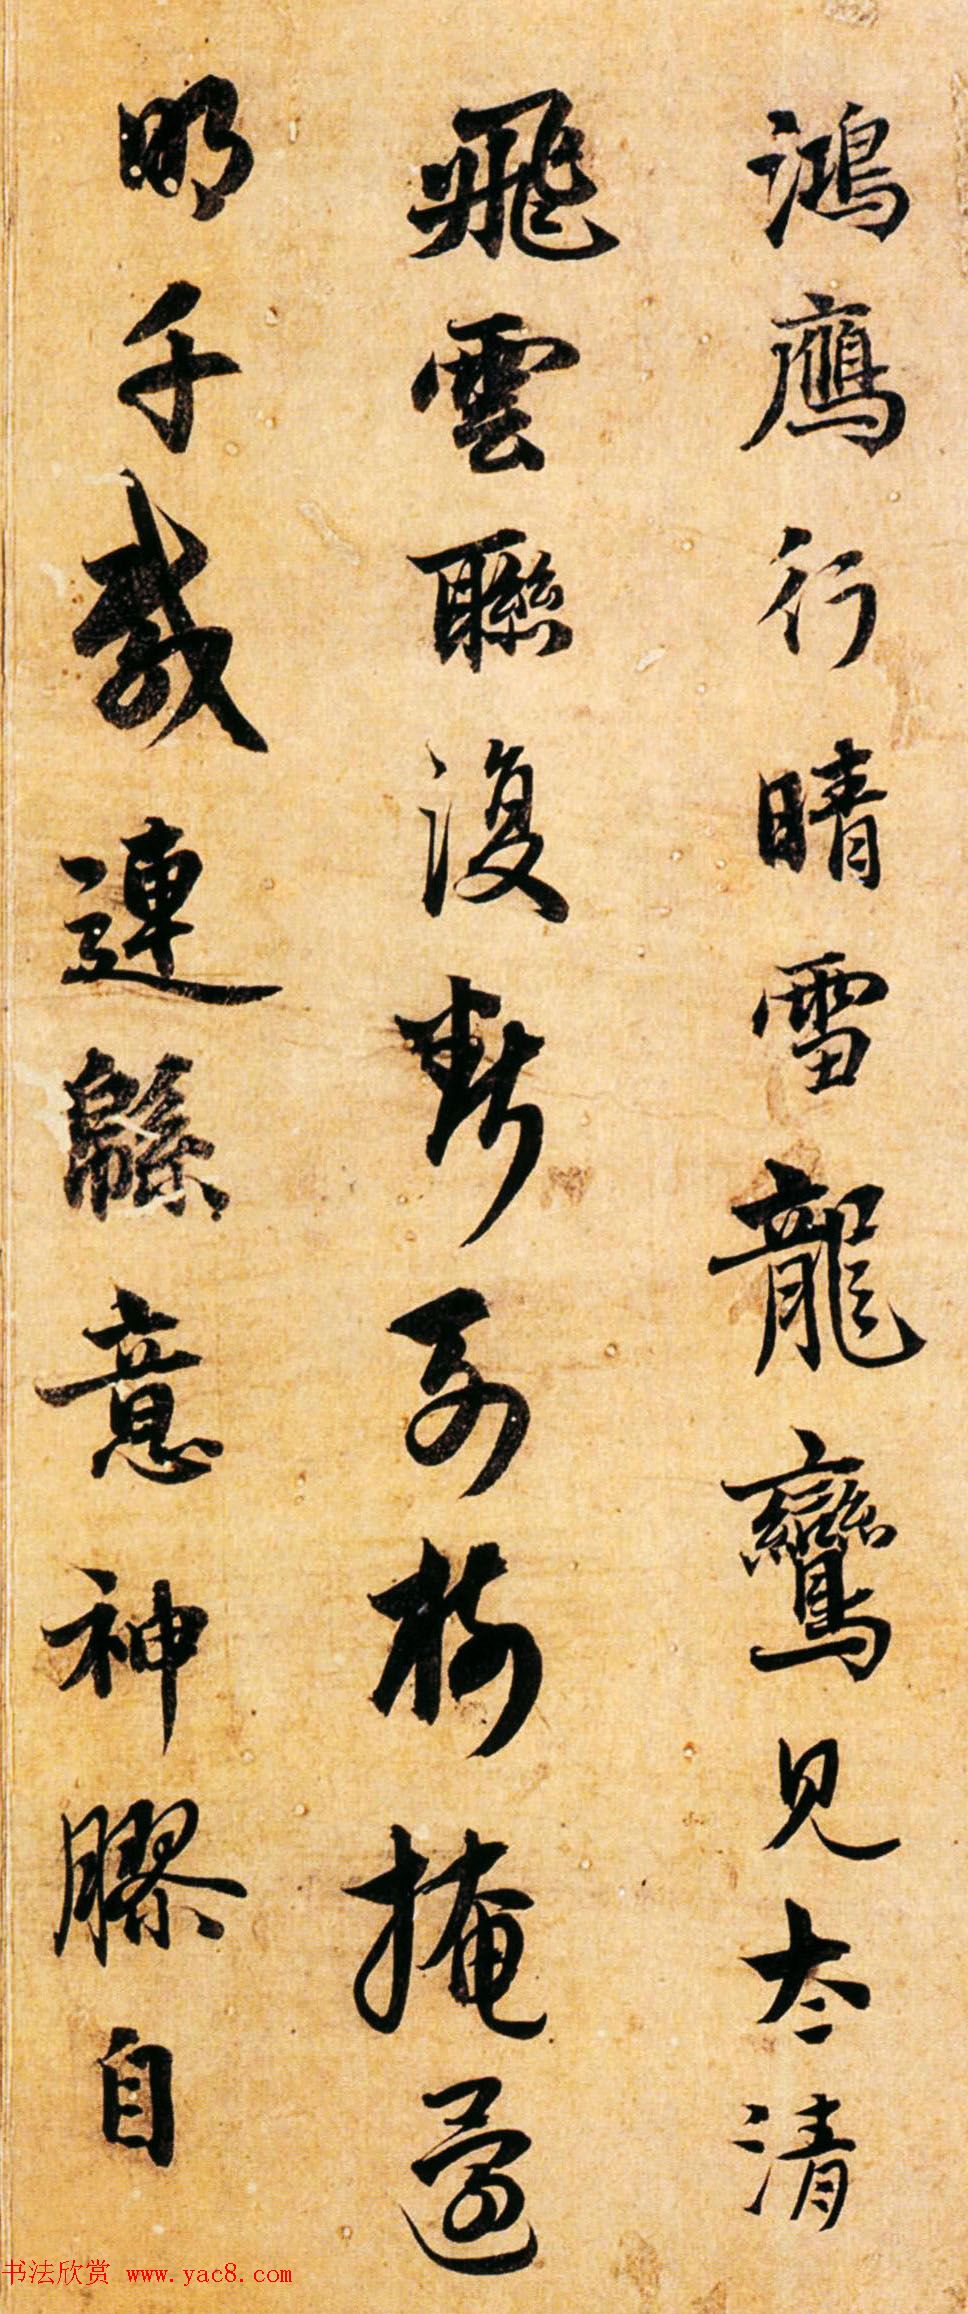 鴻鴈行晴雪龍鸞見太清
飛雲聯復斷列樹掩還
明千載連緜意神膠自
书法欣赏 www.yac8.com